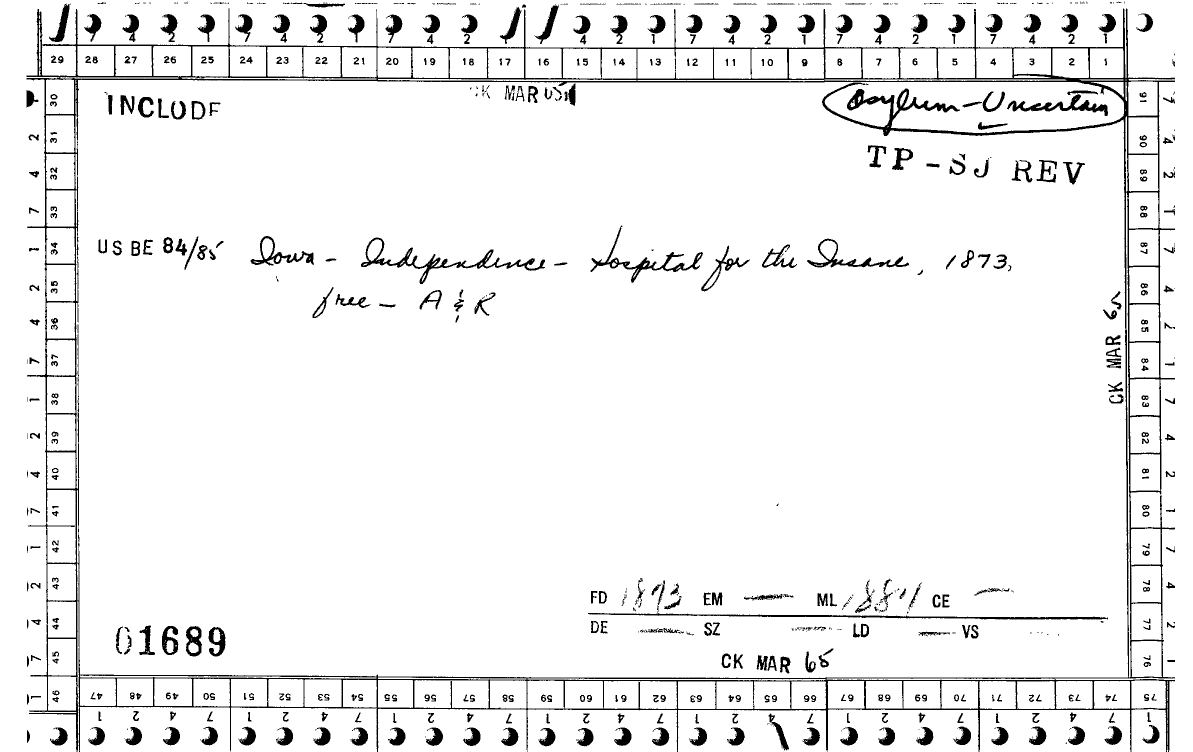 7 4 2 1 7 4 2 1 7 4 2 1 7 4 2 1 7 4 2 1 7 4 2 1 7 4 2 1
29 28 27 26 25 24 23 22 21 20 19 18 17 16 15 14 13 12 11 10 9 8 7 6 5 4 3 2 1
INCLUDE
CK MAR 65
Asylum - Uncertain
TP - SJ REV
US BE 84/85 Iowa - Independence - Hospital for the Insane, 1873,
free - A & R
CK MAR 65
FD 1873 EM — ML 1884 CE —
DE — SZ — LD — VS
01689
CK MAR 65
30 31 32 33 34 35 36 37 38 39 40 41 42 43 44 45 46
91 90 89 88 87 86 85 84 83 82 81 80 79 78 77 76
47 48 49 50 51 52 53 54 55 56 57 58 59 60 61 62 63 64 65 66 67 68 69 70 71 72 73 74 75
1 2 4 7 1 2 4 7 1 2 4 7 1 2 4 7 1 2 4 7 1 2 4 7 1 2 4 7 1